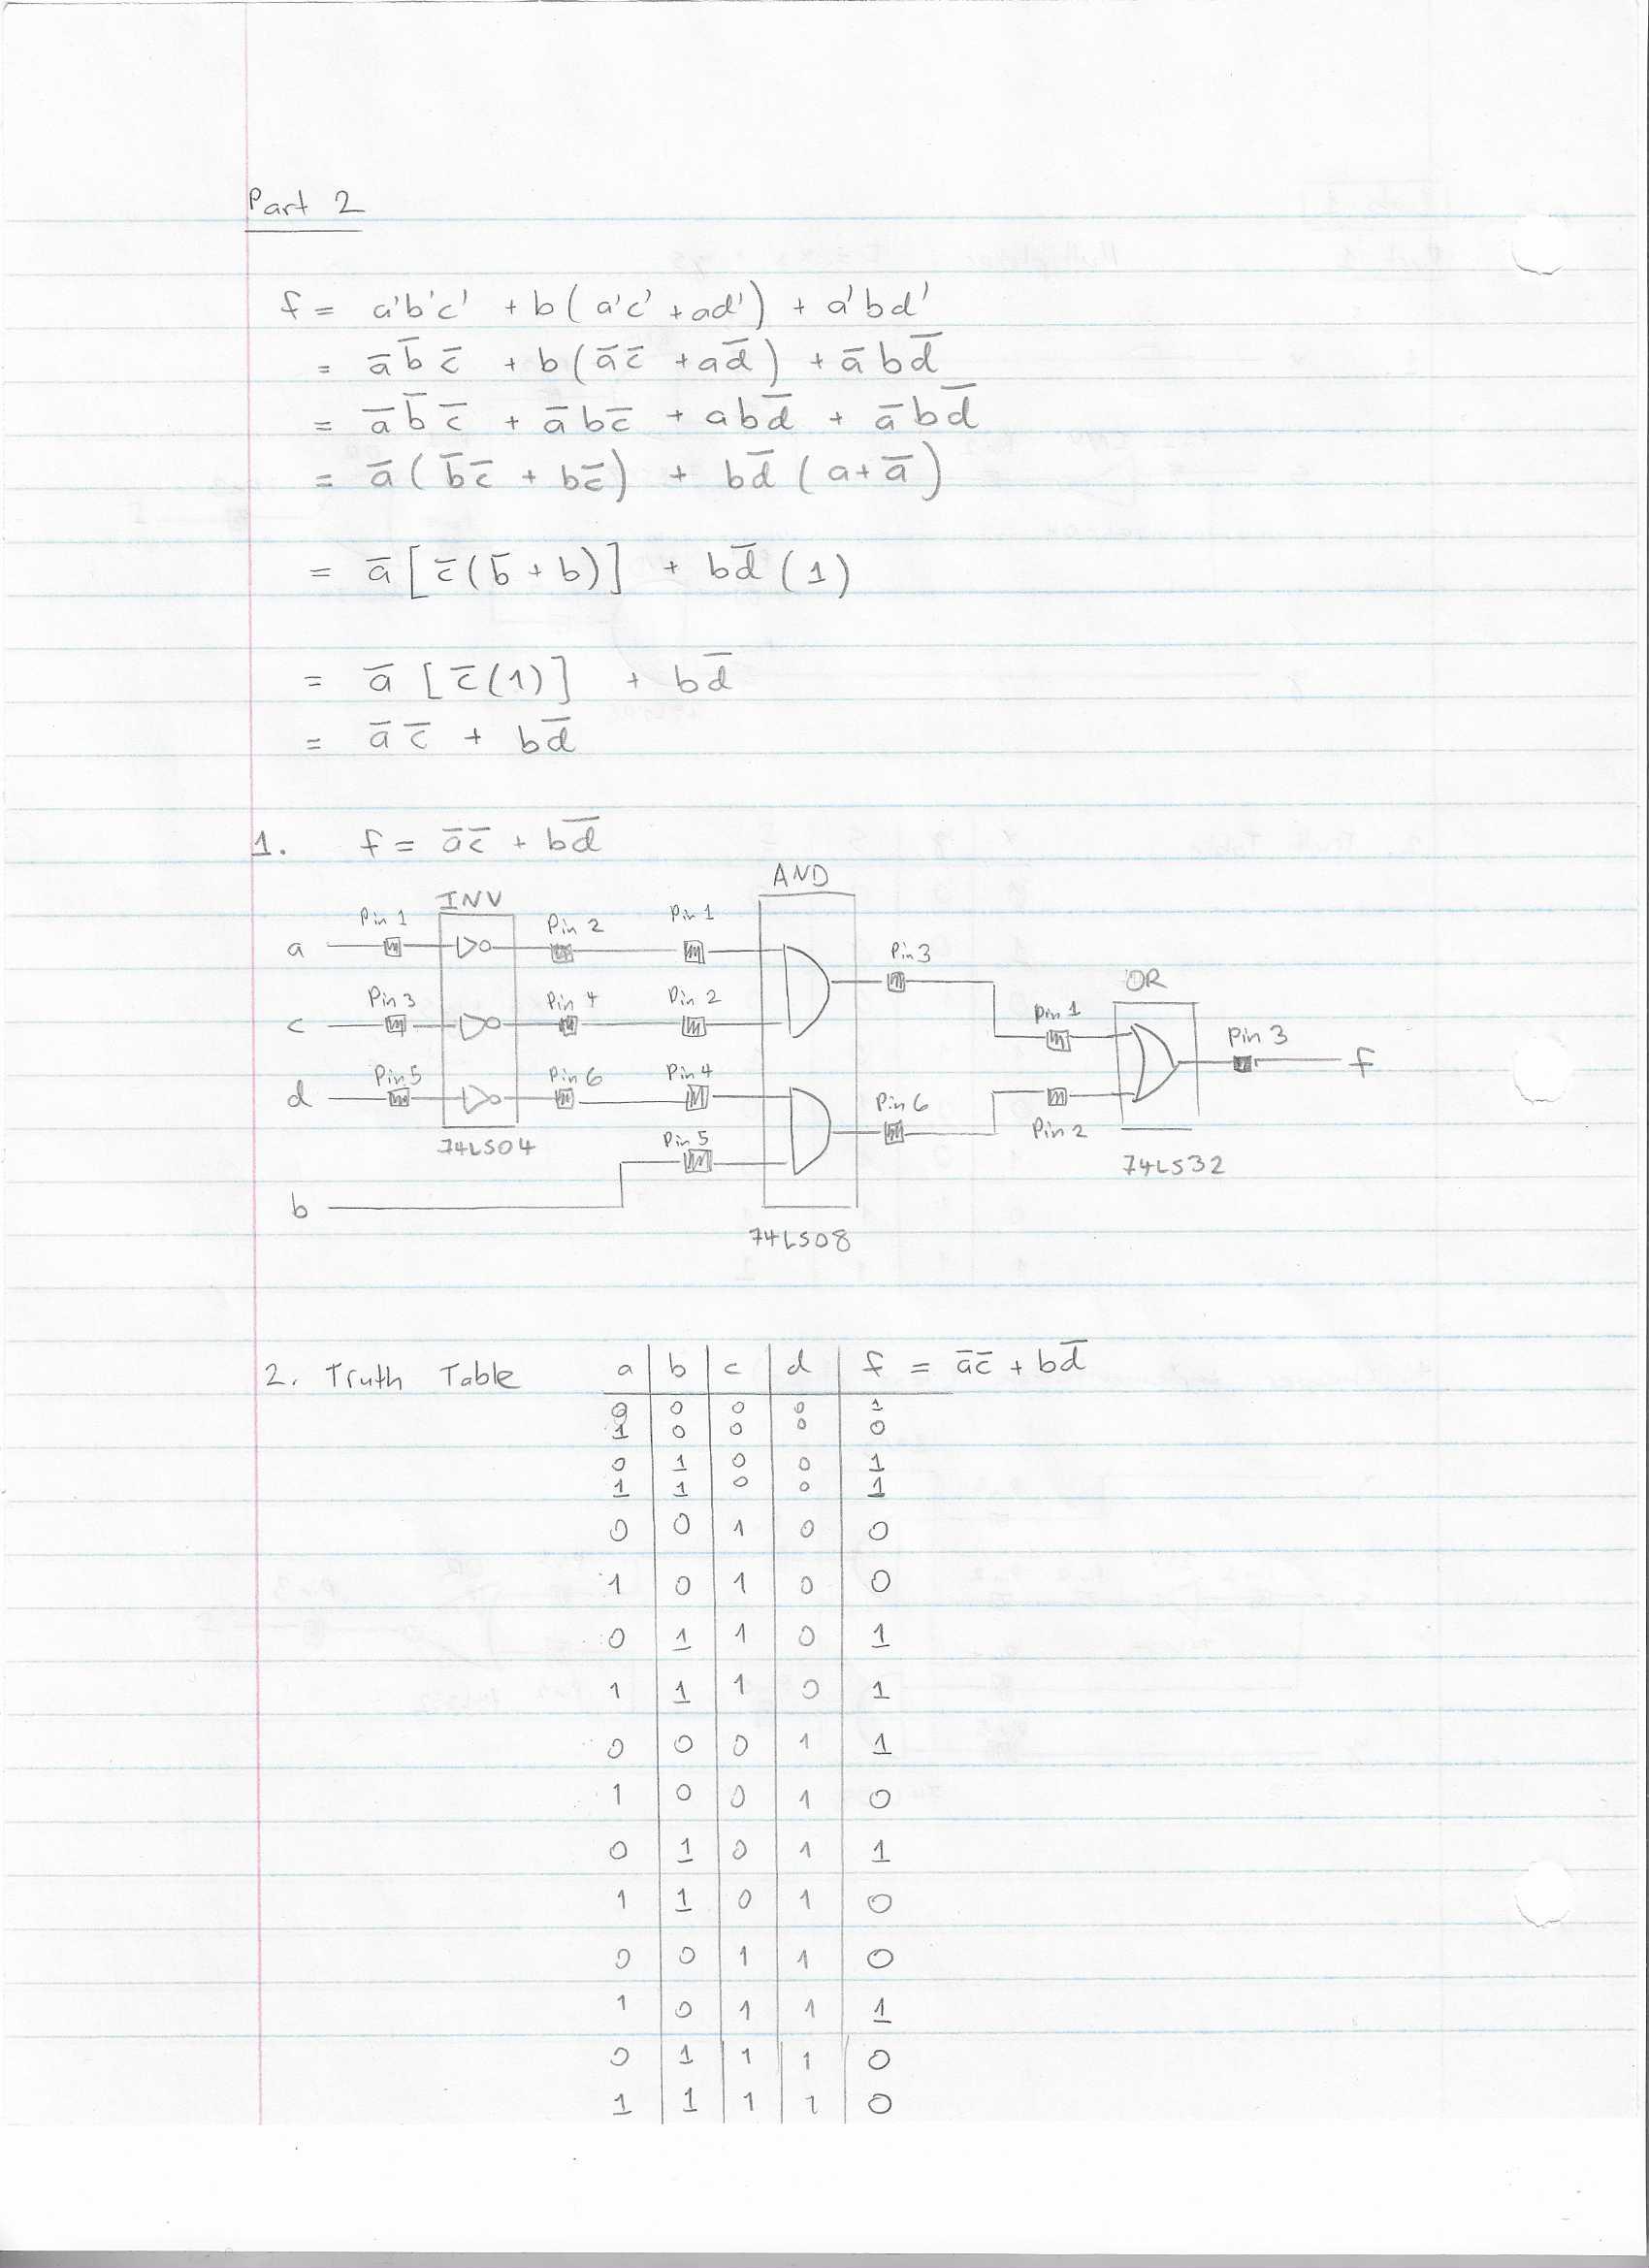 Part 2
f = a'b'c' + b(a'c' + ad') + a'bd'
= a̅ b̅ c̅ + b(a̅ c̅ + ad̅) + a̅ bd̅
= a̅ b̅ c̅ + a̅ bc̅ + abd̅ + a̅ bd̅
= a̅ (b̅ c̅ + bc̅) + bd̅ (a + a̅)
= a̅ [c̅(b̅ + b)] + bd̅ (1)
= a̅ [c̅(1)] + bd̅
= a̅ c̅ + bd̅
1. f = a̅c̅ + bd̅
INV AND
a Pin 1 Pin 2 Pin 1 Pin 3
c Pin 3 Pin 4 Pin 2 OR
Pin 1 Pin 3 f
d Pin 5 Pin 6 Pin 4 Pin 6
Pin 5 Pin 2
74LS04 74LS32
b
74LS08
2. Truth Table a b c d f = a̅c̅ + bd̅
0 0 0 0 1
1 0 0 0 0
0 1 0 0 1
1 1 0 0 1
0 0 1 0 0
1 0 1 0 0
0 1 1 0 1
1 1 1 0 1
0 0 0 1 1
1 0 0 1 0
0 1 0 1 1
1 1 0 1 0
0 0 1 1 0
1 0 1 1 1
0 1 1 1 0
1 1 1 1 0